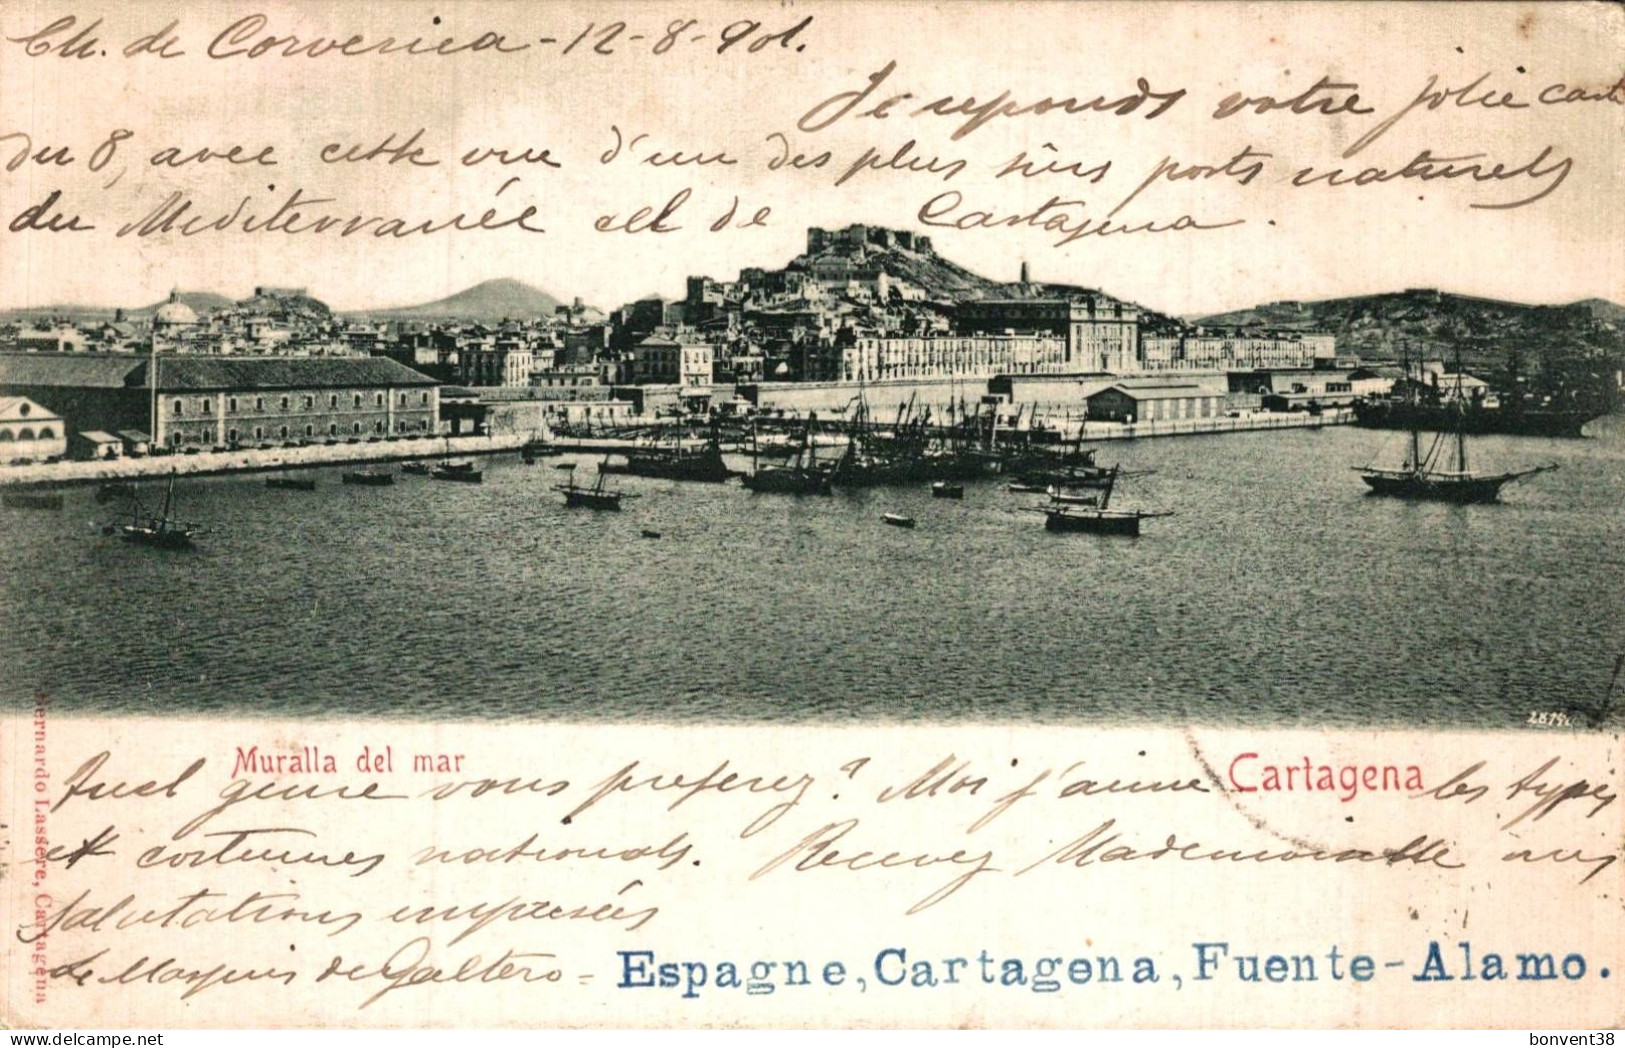 Ch. de Corverica - 12-8-901.
Je reponds votre jolie carte
du 8, avec cette vue d'un des plus sûrs ports naturels
du Mediterranée cel de Cartagena.
28790
Muralla del mar
Cartagena
Quel genre vous preferez? Moi j'aime les types
et costumes nationals. Recevez Mademoiselle mes
salutations empresées
Le Marquis de Galtero =
Espagne, Cartagena, Fuente-Alamo.
Bernardo Lassere, Cartagena
www.delcampe.net
bonvent38